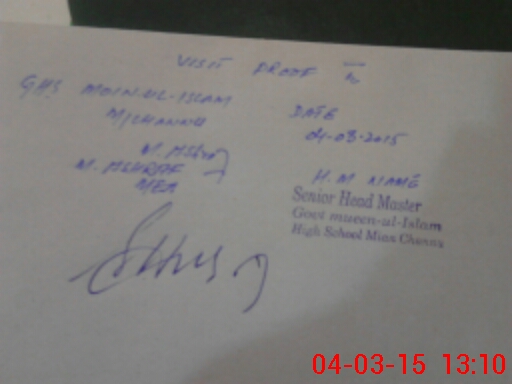 VISIT PROOF
GHS MOIN-UL-ISLAM
M/CHANNU
DATE
04-03-2015
M. ASHRAF
MEA
H.M NAME
Senior Head Master
Govt mueen-ul-Islam
High School Mian Channu
04-03-15 13:10